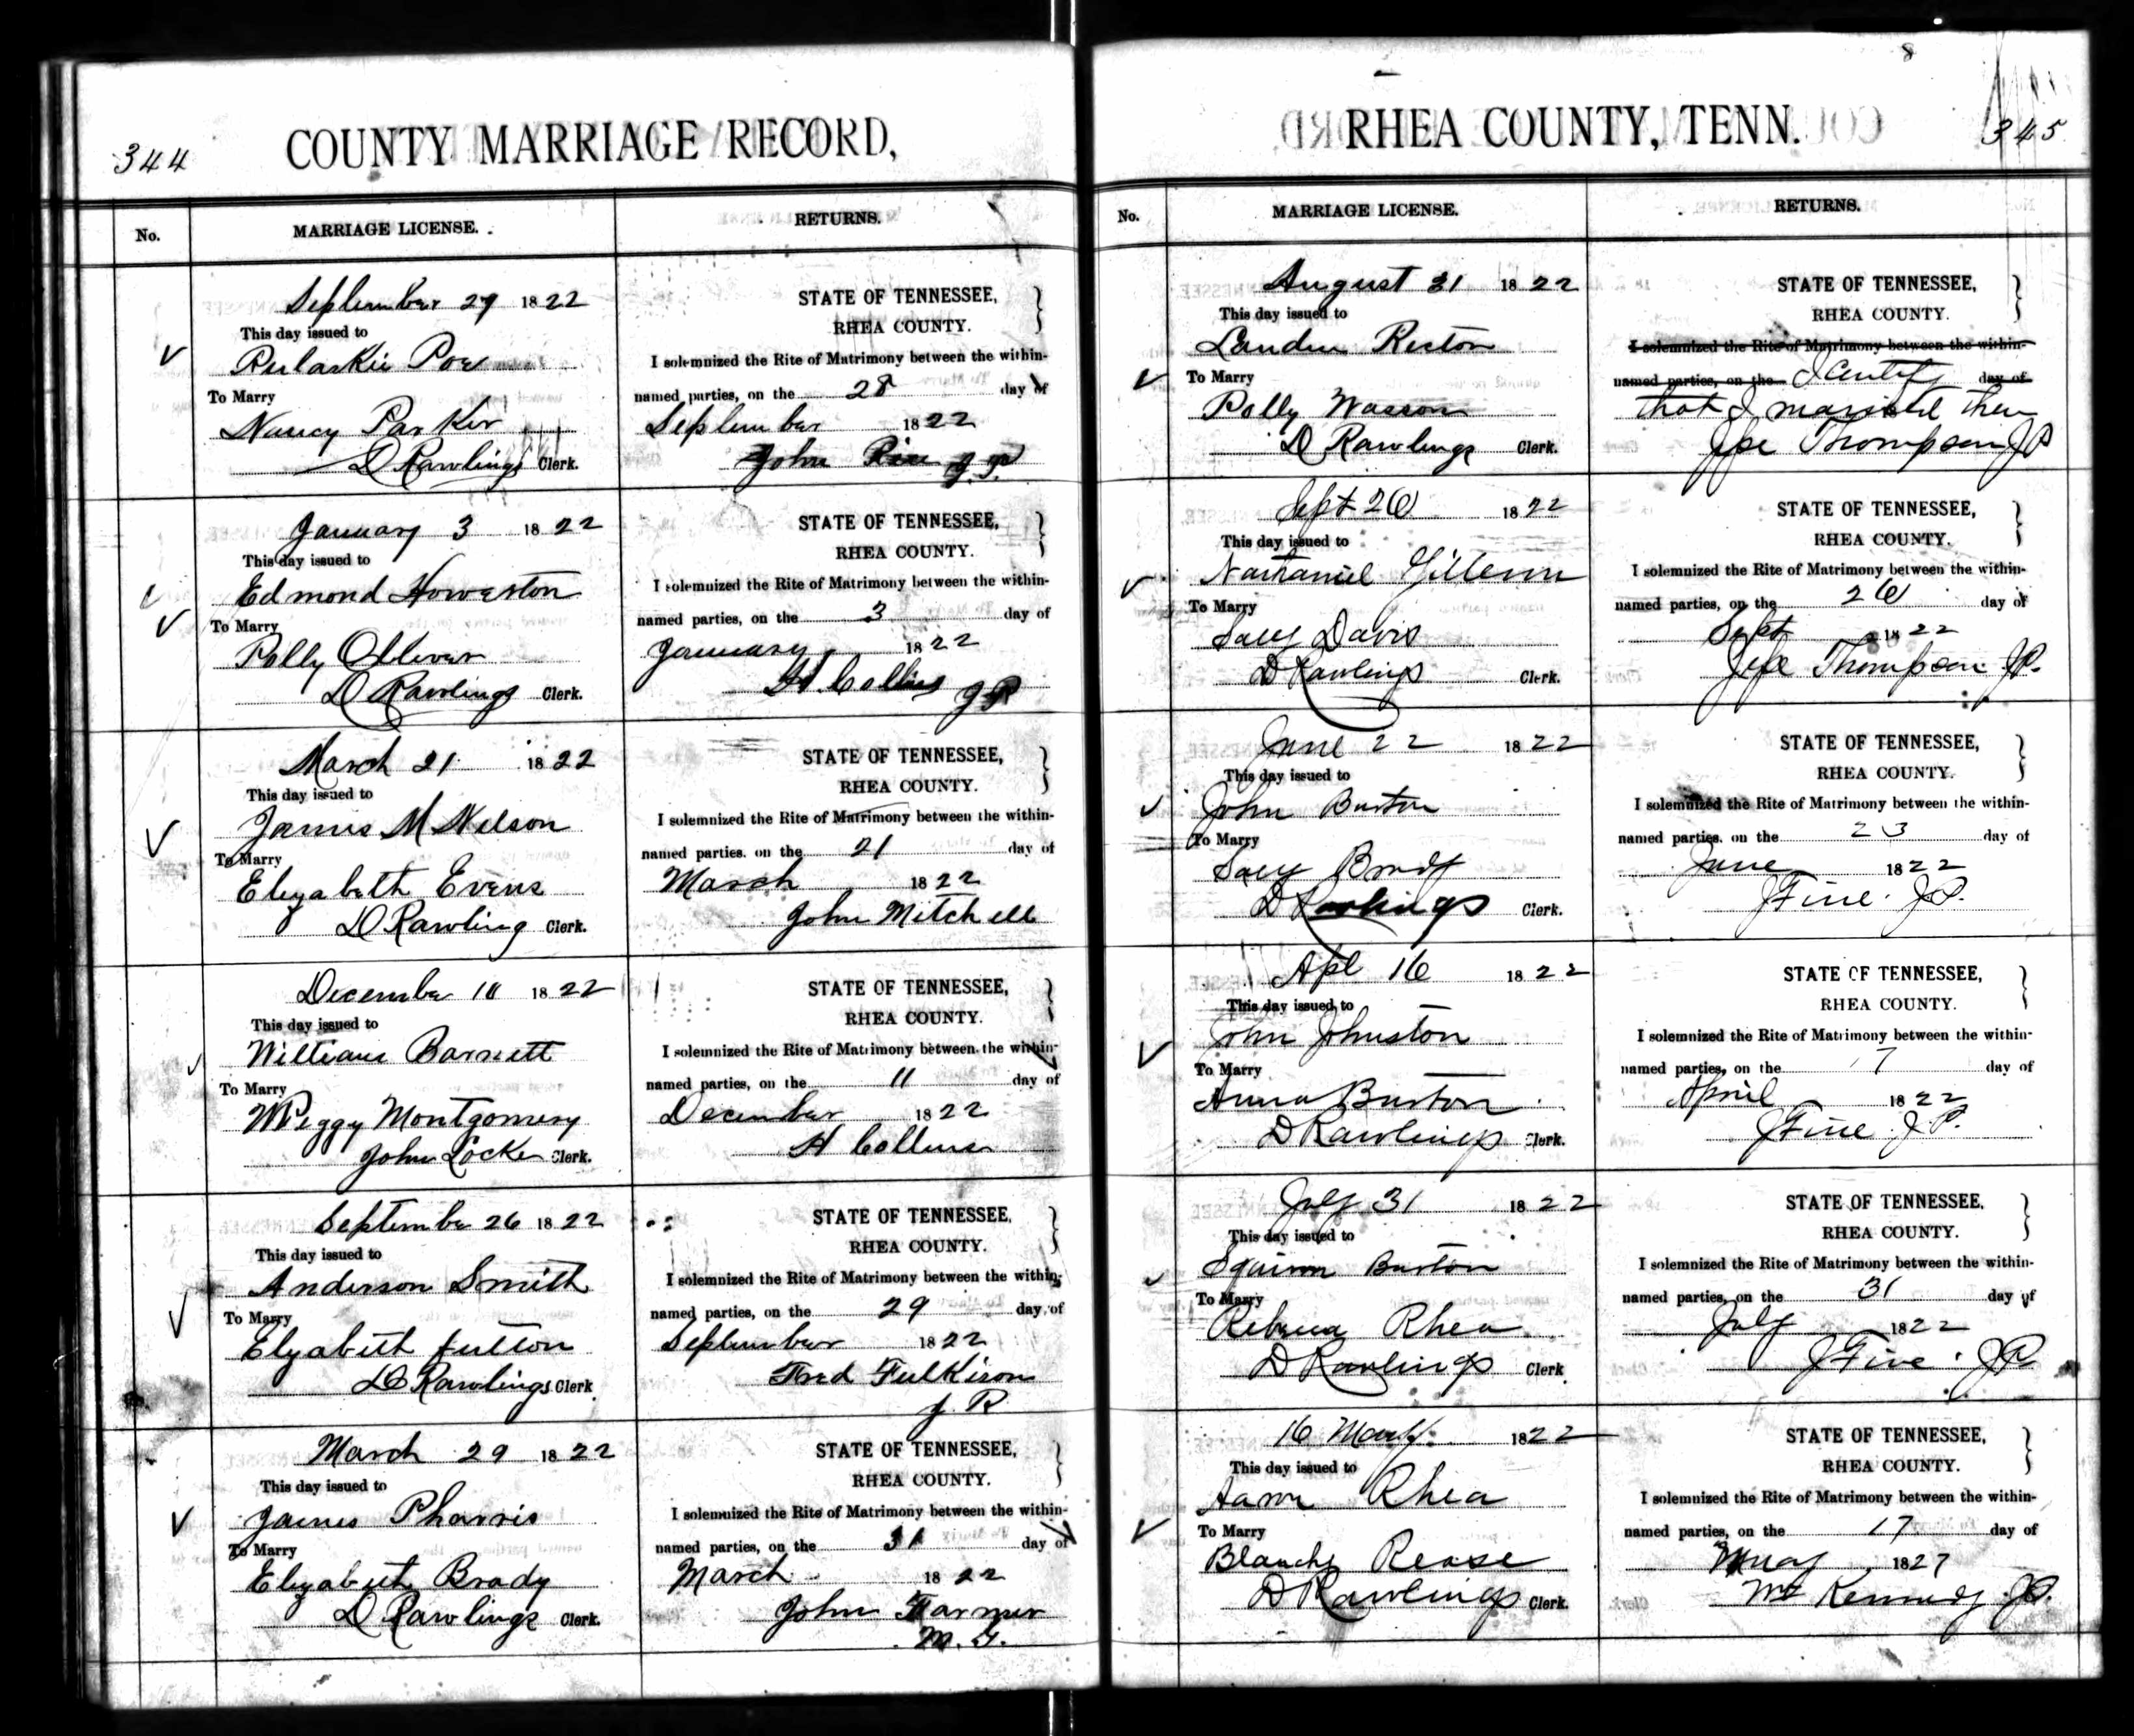 344
COUNTY MARRIAGE RECORD,
No.
MARRIAGE LICENSE.
RETURNS.
September 27 1822
This day issued to
Pulaskie Poe
To Marry
Nancy Parker
D Rawlings Clerk.
STATE OF TENNESSEE,
RHEA COUNTY.
I solemnized the Rite of Matrimony between the within-
named parties, on the 28 day of
September 1822
John Rice J.P.
January 3 1822
This day issued to
Edmond Howerton
To Marry
Polly Olliver
D Rawlings Clerk.
STATE OF TENNESSEE,
RHEA COUNTY.
I solemnized the Rite of Matrimony between the within-
named parties, on the 3 day of
January 1822
H Collins JP
March 21 1822
This day issued to
James M Nelson
To Marry
Elizabeth Evens
D Rawling Clerk.
STATE OF TENNESSEE,
RHEA COUNTY.
I solemnized the Rite of Matrimony between the within-
named parties. on the 21 day of
March 1822
John Mitchell
December 10 1822
This day issued to
William Barnett
To Marry
Peggy Montgomery
John Locke Clerk.
STATE OF TENNESSEE,
RHEA COUNTY.
I solemnized the Rite of Matrimony between the within-
named parties, on the 11 day of
December 1822
H Collins
September 26 1822
This day issued to
Anderson Smith
To Marry
Elizabeth Fulton
D Rawlings Clerk
STATE OF TENNESSEE,
RHEA COUNTY.
I solemnized the Rite of Matrimony between the within-
named parties, on the 29 day of
September 1822
Fred Fulkison
J. P.
March 29 1822
This day issued to
James Pharris
To Marry
Elizabeth Brady
D Rawlings Clerk.
STATE OF TENNESSEE,
RHEA COUNTY.
I solemnized the Rite of Matrimony between the within-
named parties, on the 31 day of
March 1822
John Farmer
M. G.
345
RHEA COUNTY, TENN.
No.
MARRIAGE LICENSE.
RETURNS.
August 31 1822
This day issued to
Landen Recton
To Marry
Polly Wasson
D Rawlings Clerk.
STATE OF TENNESSEE,
RHEA COUNTY.
I solemnized the Rite of Matrimony between the within-
named parties, on the I certify day of
that I married them
Jesse Thompson JP
Sept 26 1822
This day issued to
Nathaniel
To Marry
Sally Davis
D Rawlings Clerk.
STATE OF TENNESSEE,
RHEA COUNTY.
I solemnized the Rite of Matrimony between the within-
named parties, on the 26 day of
Sept 1822
Jesse Thompson JP.
June 22 1822
This day issued to
John Burton
To Marry
D Rawlings Clerk.
STATE OF TENNESSEE,
RHEA COUNTY.
I solemnized the Rite of Matrimony between the within-
named parties. on the 23 day of
June 1822
J Fine. J.P.
Apl 16 1822
This day issued to
John Johnston
To Marry
Anna Burton
D Rawlings Clerk.
STATE OF TENNESSEE,
RHEA COUNTY.
I solemnized the Rite of Matrimony between the within-
named parties, on the 17 day of
April 1822
J Fine J.P.
July 31 1822
This day issued to
Squire Burton
To Marry
Rebecca Rhea
D Rawlings Clerk
STATE OF TENNESSEE,
RHEA COUNTY.
I solemnized the Rite of Matrimony between the within-
named parties, on the 31 day of
July 1822
J Fine. JP
16 May 1822
This day issued to
Aaron Rhea
To Marry
Blanche Rease
D Rawlings Clerk.
STATE OF TENNESSEE,
RHEA COUNTY.
I solemnized the Rite of Matrimony between the within-
named parties, on the 17 day of
May 1827
Wm Kennedy JP.